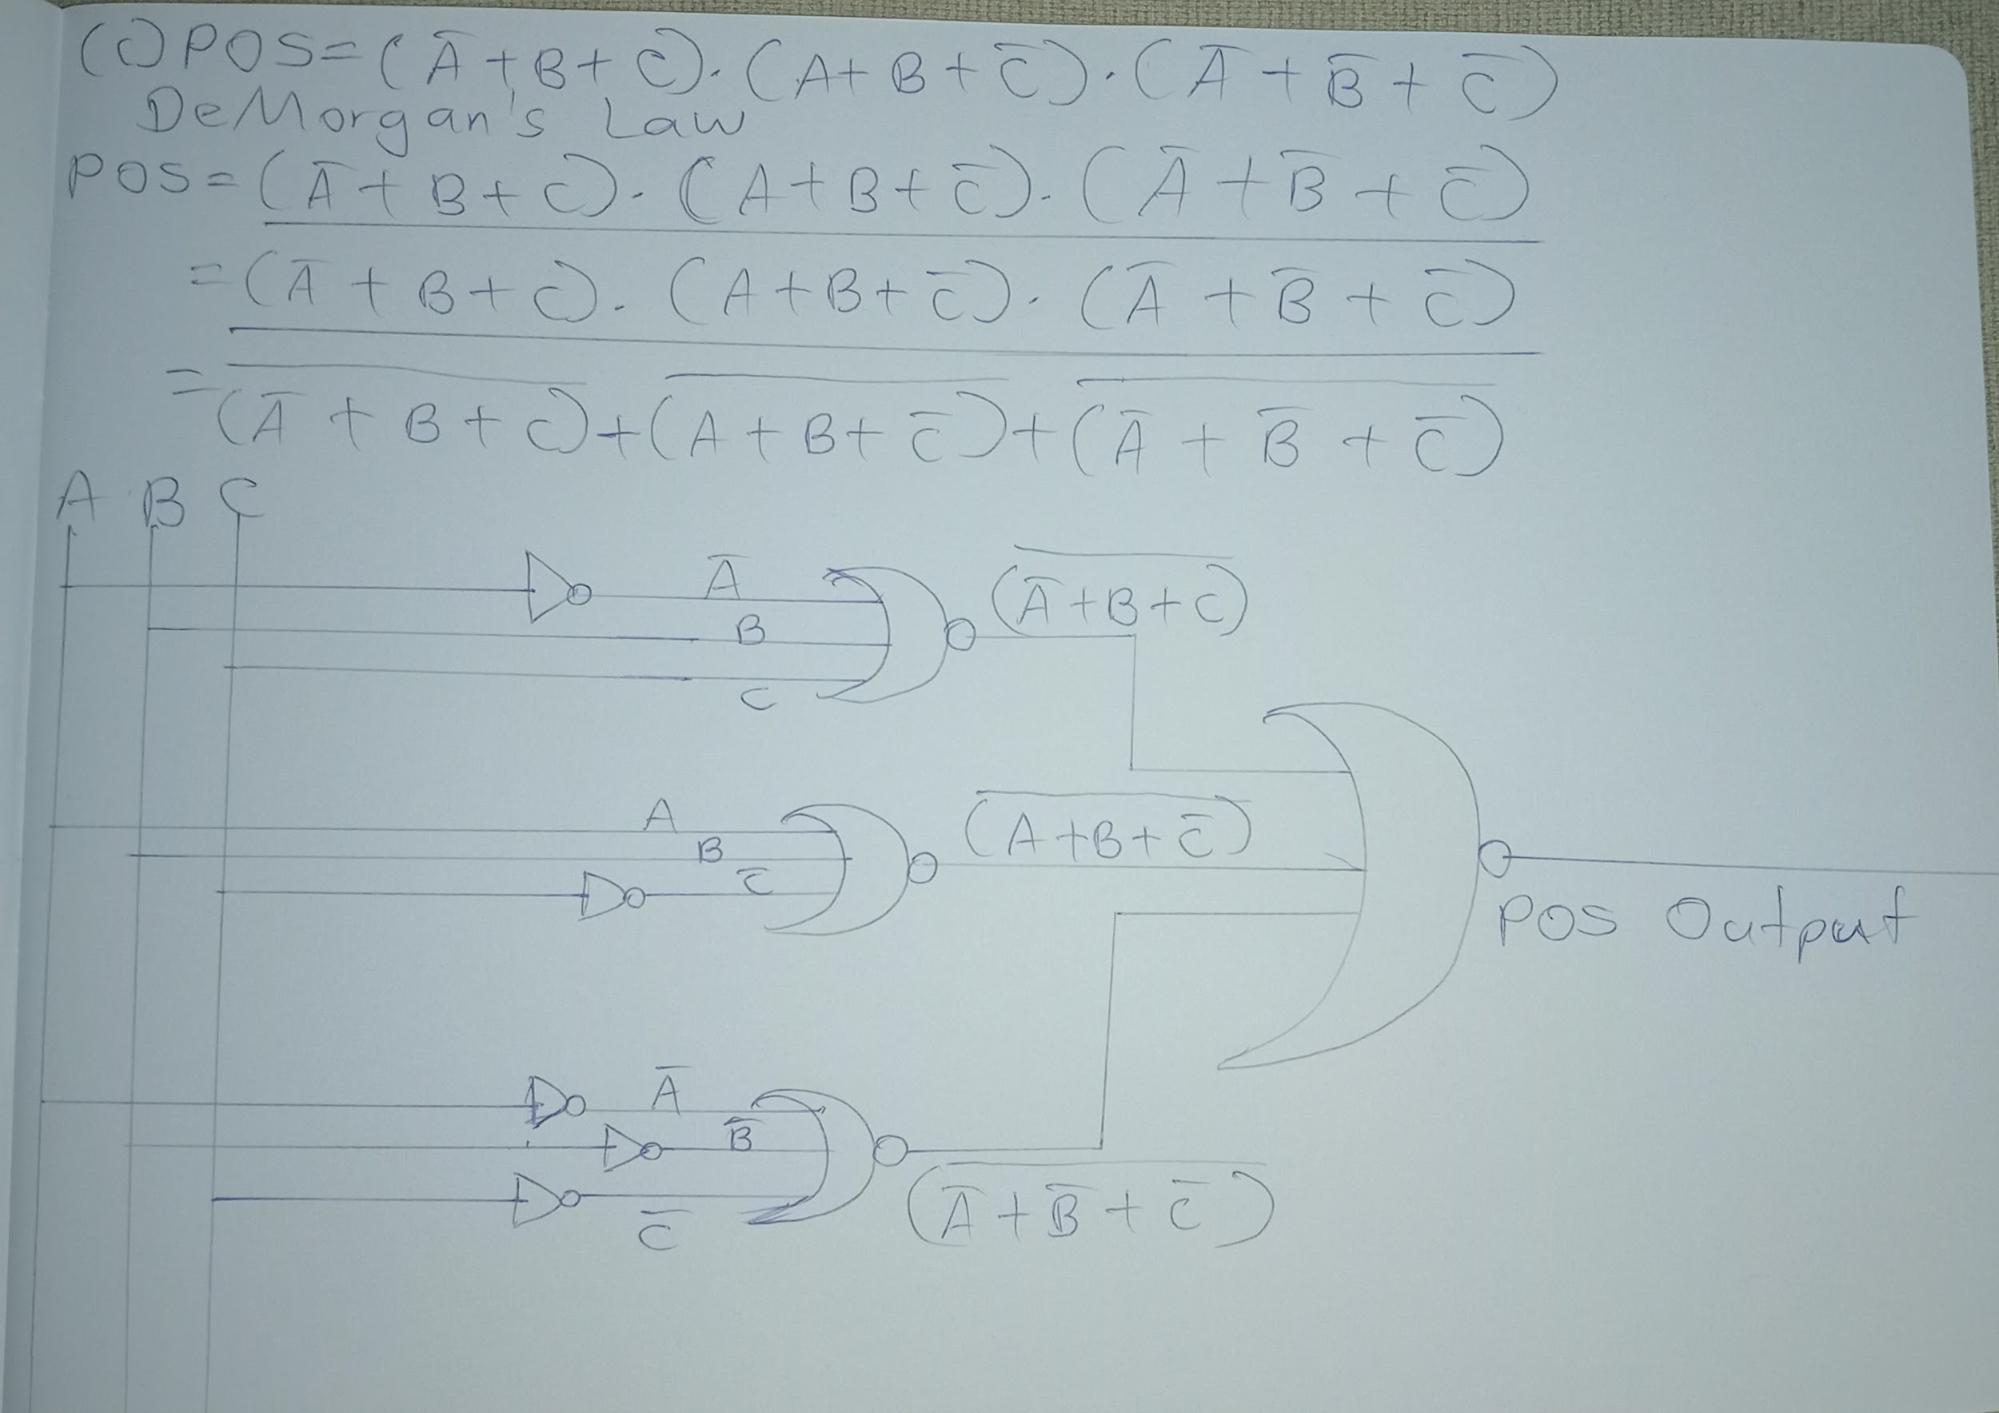 (C) POS = (A̅ + B + C) . (A + B + C̅) . (A̅ + B̅ + C̅)
DeMorgan's Law
POS = (A̅ + B + C) . (A + B + C̅) . (A̅ + B̅ + C̅)
= (A̅ + B + C) . (A + B + C̅) . (A̅ + B̅ + C̅)
= (A̅ + B + C) + (A + B + C̅) + (A̅ + B̅ + C̅)
A B C
A̅
(A̅ + B + C)
B
C
A
(A + B + C̅)
B
C̅
POS Output
A̅
B̅
C̅
(A̅ + B̅ + C̅)